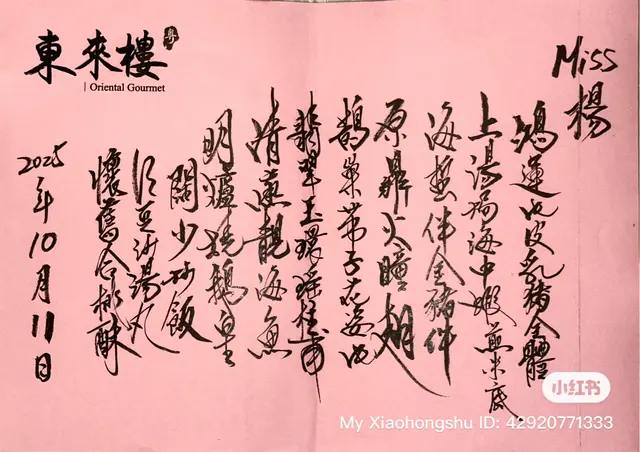 東來樓
Oriental Gourmet
Miss 楊
鴻運化皮乳豬全體
上湯焗海中蝦煎米底
海蜇伴金豬件
原鼎火瞳翅
鵲巢帶子花姿片
翡翠玉環瑤柱甫
清蒸靚海魚
明爐燒鵝皇
闊少炒飯
紅豆沙湯丸
懷舊合桃酥
2025年10月11日
小红书
My Xiaohongshu ID: 42920771333